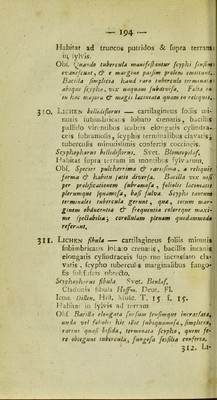 — 194 —
Habitat ad truncos putridos & supra terram
in sylvis.
Obs. Quando tubercula manifestantur scyphi sensim
evanescunt, & e margine passim prolem emittunt.
Bacilla simplicia haud raro tubercula terminant
absque scypho, vix unquam subdivisa. Folia sub
in hoc majora & magis laciniata quam in reliquis.
310. LICHEN bellidiflorus — cartilagineus foliis mi-
nutis subimbricatis lobato crenatis, bacillis
pallido virentibus scabris elongatis cylindra-
ceis subramosis, scyphis terminalibus clavatis,
tuberculis minutissimis confertis coccineis.
Scyphophorus bellidiflorus, Svet. Blomsterlaf.
Habitat supra terram in montibus sylvarum.
Obs. Species pulcherrima & rarissima, a reliquis
forma & habitu satis diversa. Bacilla vix nisi
per prolificationem subramosa, foliolis laciniatis
plerumque squamosa, basi fulva. Scyphi eorum
terminales tubercula gerunt, quæ, totum mar-
ginem obducentia & frequentia coloreque maxi-
me spectabilia, corollulam plenam quodammodo
referunt.
311. LICHEN fibula — cartilagineus foliis minutis
subimbricatis lobato crenatis, bacillis incanis
elongatis cylindraceis supra incrassato cla-
vatis, scypho tuberculis marginalibus fungo-
sis subfuscis obtecto.
Scyphophorus fibula Svet. Bendaf.
Cladonia fibula Hoffm. Deut. Fl.
Icon. Dillen. Hist. Musc. T. 15 f. 15.
Habitat in sylvis ad terram.
Obs. Bacilla elongata sursum sensimque incrassata,
nuda vel foliolis hic illic subsquamosa, simplicia,
rarius quasi bifida, terminata scypho, quem fe-
re obtegunt tubercula, fungosa sessilia conferta.
312. LI-